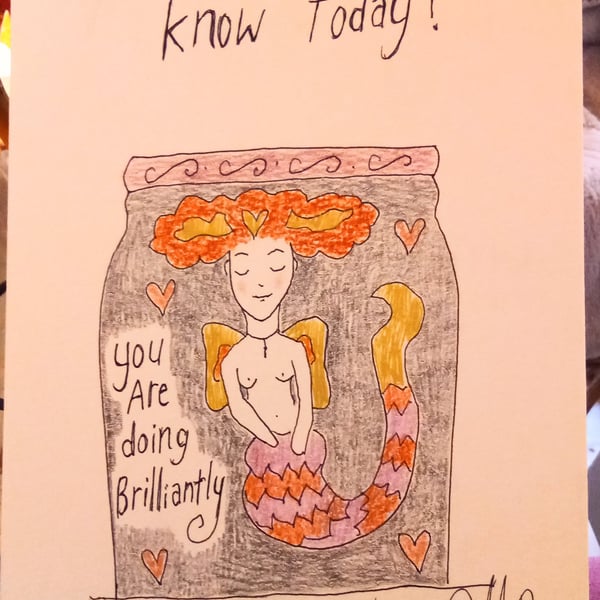 know Today!
you
Are
doing
Brilliantly